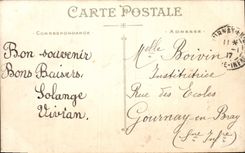 CARTE POSTALE
CORRESPONDANCE
ADRESSE
Bon souvenir
Bons Baisers.
Solange
Vivian.
Melle Boivin
Institutrice
Rue des Ecoles
Gournay-en-Bray
(Sne Infre)